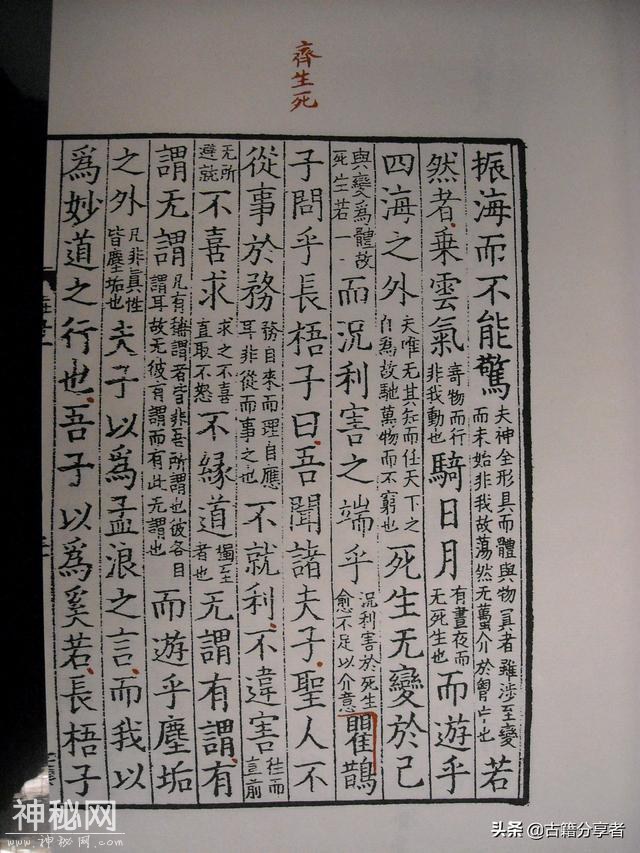 齊生死
振海而不能驚夫神全形具而體與物冥者雖涉至變而未始非我故蕩然无蠆介於胷中也若
然者乘雲氣寄物而行非我動也騎日月有晝夜而无死生也而遊乎
四海之外夫唯无其知而任天下之自爲故馳萬物而不窮也死生无變於己
與變爲體故死生若一而況利害之端乎況利害於死生愈不足以介意瞿鵲
子問乎長梧子曰吾聞諸夫子聖人不
從事於務務自來而理自應耳非從而事之也不就利不違害任而直前
无所避就不喜求求之不喜直取不怒不緣道獨至者也无謂有謂有
謂无謂凡有稱謂者皆非吾所謂也彼各自謂耳故无彼有謂而有此无謂也而遊乎塵垢
之外凡非眞性皆塵垢也夫子以爲孟浪之言而我以
爲妙道之行也吾子以爲奚若長梧子
神秘网
www.神秘网.com
头条 @古籍分享者